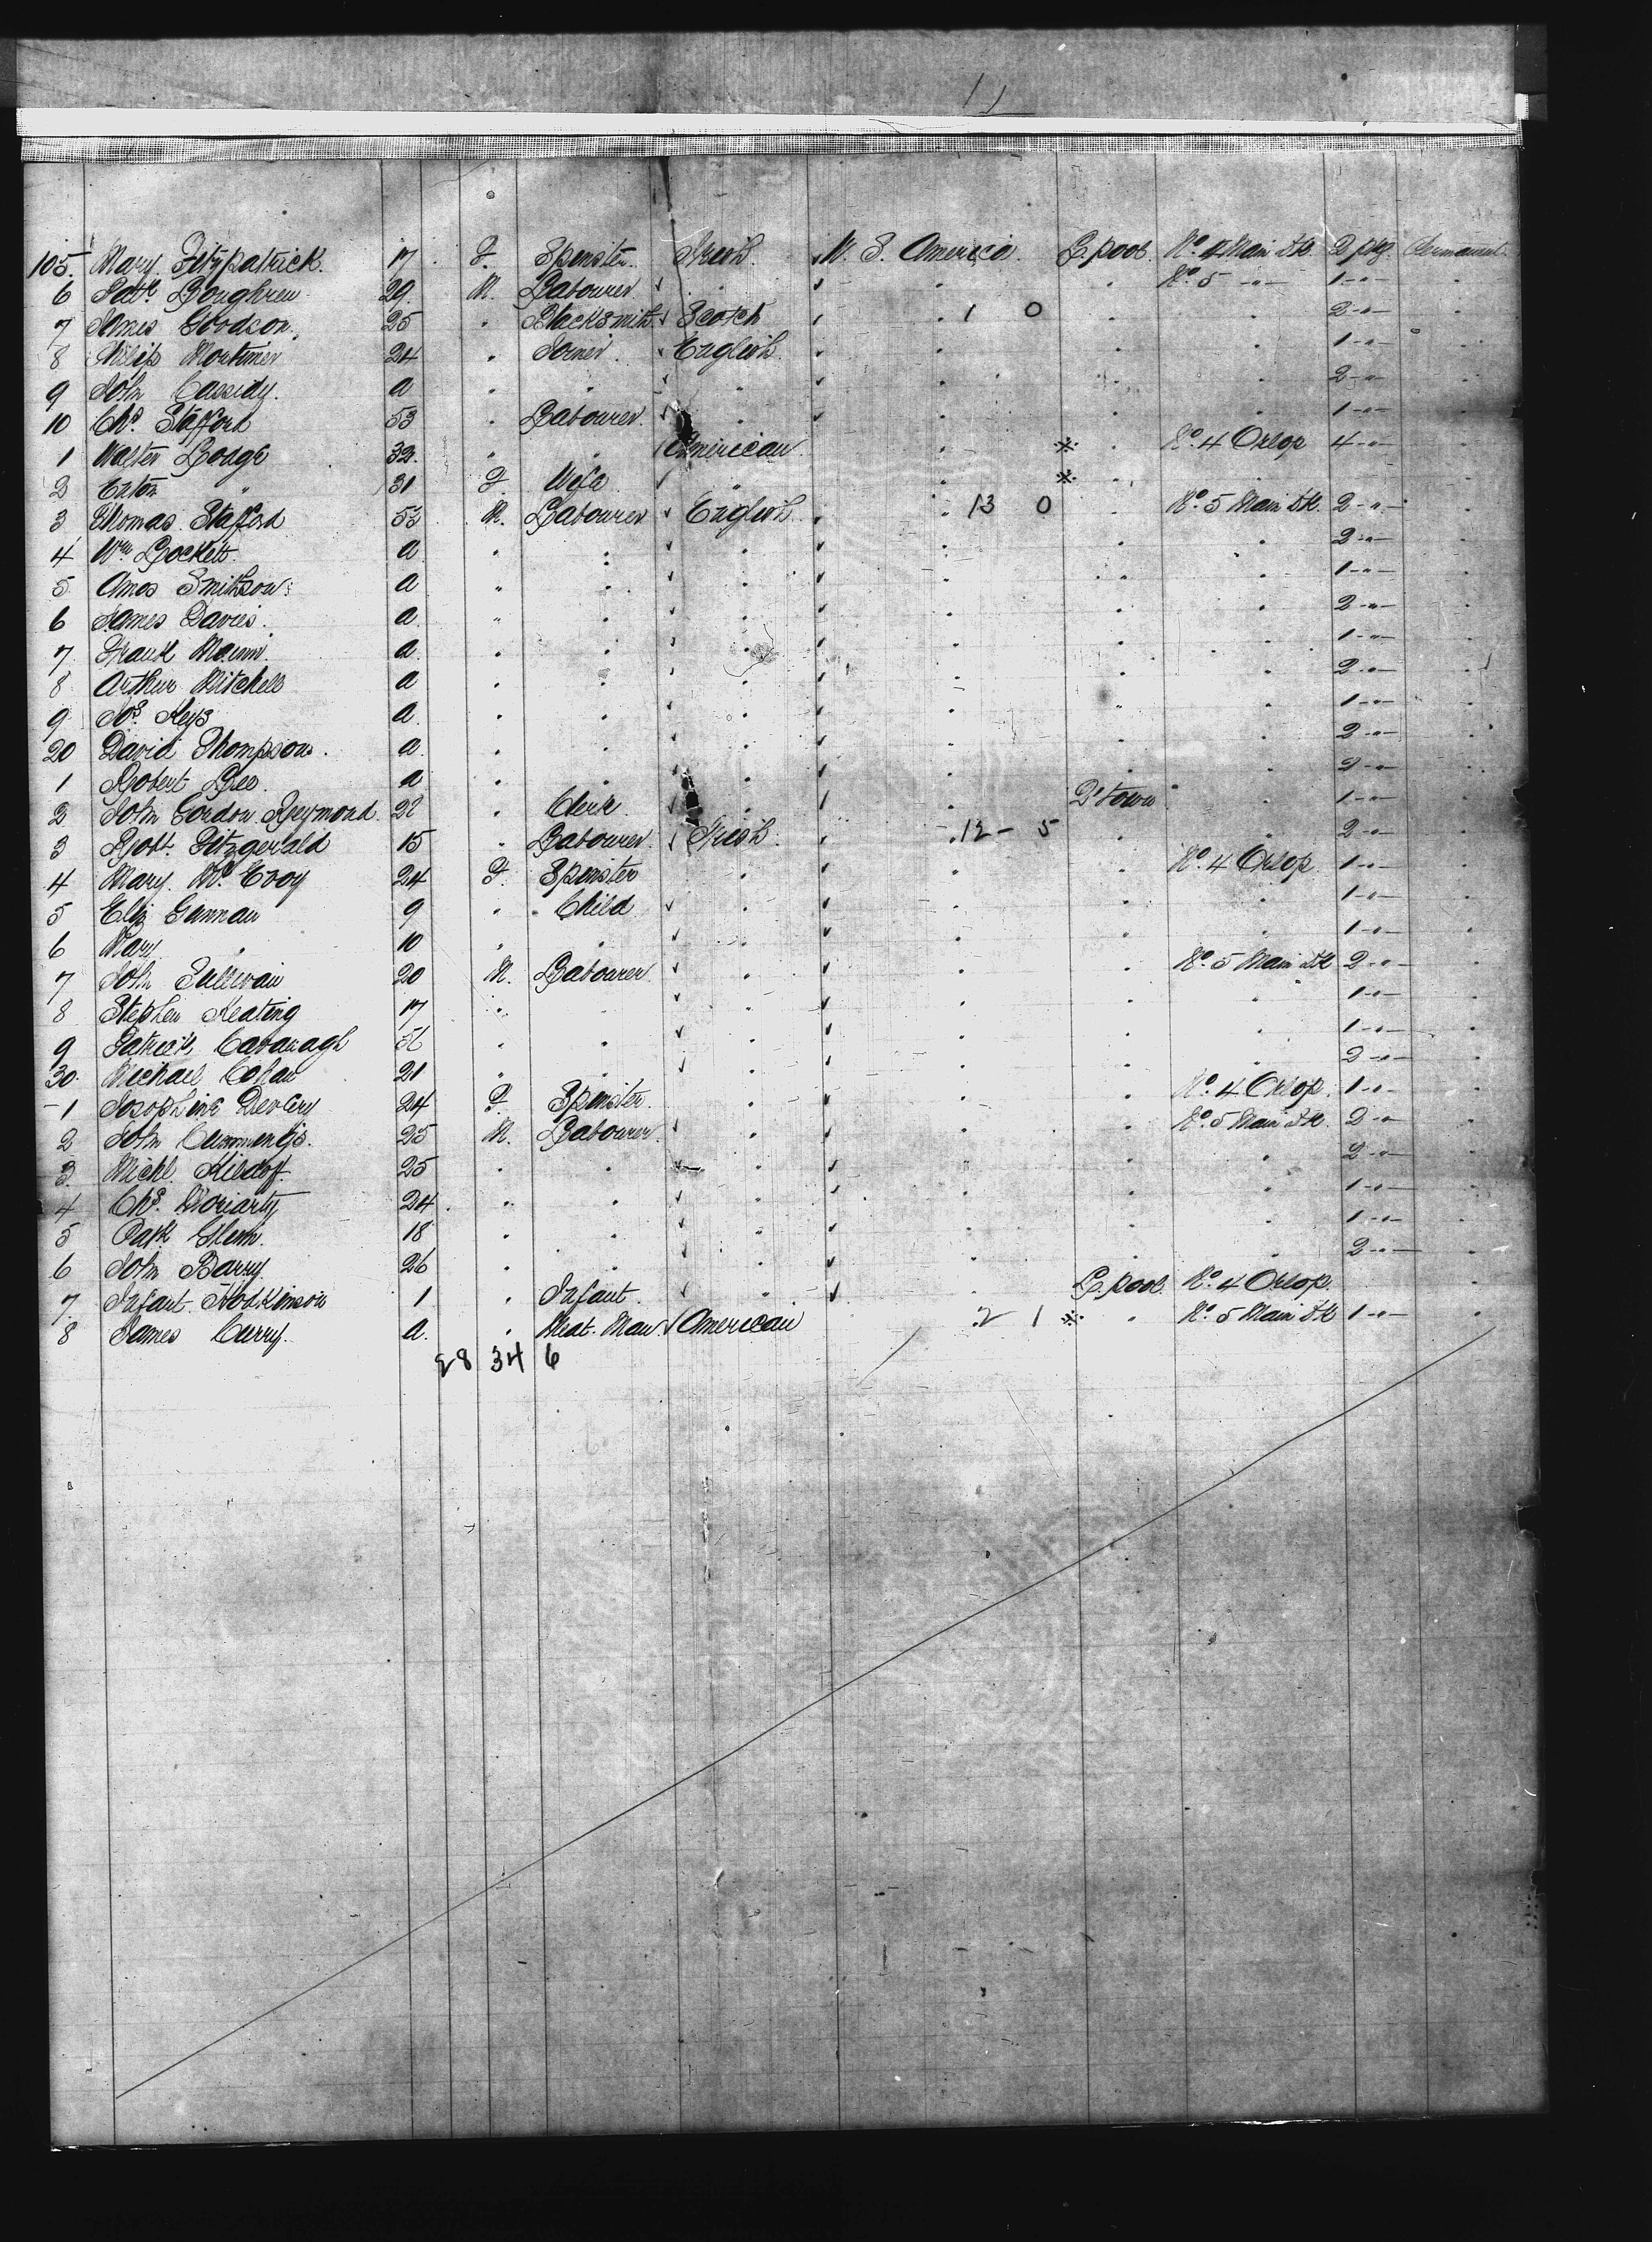 11
105. Mary Fitzpatrick. 17 F. Spinster. Irish. U. S. America L.pool. No. 4 Main Dk. 2 pkg. Permanent
6 Patk Loughren 29. M. Labourer " " " No. 5 -"- 1-"-
7 James Goodson 25 " Blacksmith Scotch " 1 0 " " 2-"-
8 Philip Mortimer 24 " Joiner. English. " " " 1-"-
9 John Cassidy. a " " " " " " 2-"-
10 Chs. Stafford 53 " Labourer. " " " " 1-"-
1 Walter Lodge 32. " " American " ※ " No. 4 Orlop 4-"-
2 " 31 F. Wife " " ※ "
3 Thomas Stafford 53 M. Labourer English " 13 0 " No. 5 Main Dk. 2-"-
4 Wm Lockett a " " " " " " 2-"-
5 Amos Smithson a " " " " " " 1-"-
6 James Davies. a " " " " " " 2-"-
7 Frank Mann. a " " " " " " 1-"-
8 Arthur Mitchell a " " " " " " 2-"-
9 Js. Keys a " " " " " " 1-"-
20 David Thompson. a " " " " " " 2-"-
1 Robert Lee. a " " " " " " 2-"-
2 John Gordon Reymond. 22 " Clerk " " Q'town " 1-"-
3 Robt. Fitzgerald 15 " Labourer. Irish. " 12 - 5 " " 2-"-
4 Mary McEvoy 24 F. Spinster " " " No. 4 Orlop. 1-"-
5 Eliz Gannan 9 " Child " " " " 1-"-
6 Mary " 10 " " " " " " 1-"-
7 John Sullivan 20 M. Labourer. " " " No. 5 Main Dk 2-"-
8 Stephen Keating 17 " " " " " " 1-"-
9 Patrick Cavanagh 56 " " " " " " 1-"-
30. Michael Cohan 21 " " " " " " 2-"-
1 Josephine Devery 24 F. Spinster. " " " No. 4 Orlop. 1-"-
2 John Cummings. 25 M. Labourer. " " " No. 5 Main Dk. 2-"-
3. Michl. Kilduff. 25 " " " " " " 2-"-
4 Chs. Moriarty 24. " " " " " " 1-"-
5 Patk Glenn. 18 " " " " " " 1-"-
6 John Barry. 26 " " " " " " 2-"-
7. Infant Hodkinson 1 " Infant. " " L.pool. No. 4 Orlop.
8 James Curry. a. " Meat. Man. American 2 1 ※ " No. 5 Main Dk 1-"-
28 34 6